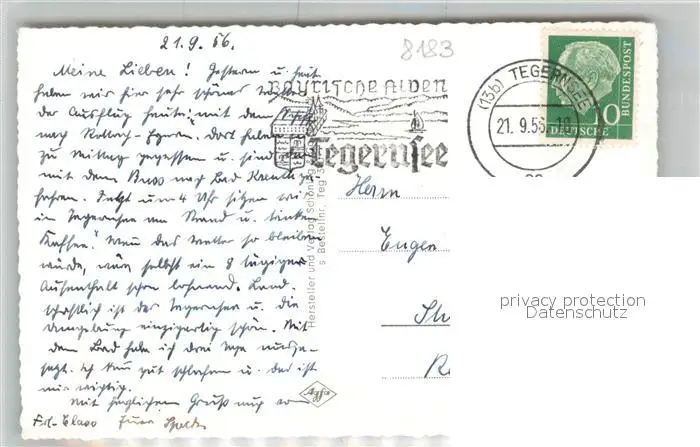 21.9.56.
8183
Meine Lieben! Gestern u. heut
haben wir hier sehr schönes
der Ausflug heute: mit dem
nach Rottach-Egern. Dort haben
zu Mittag gegessen u. sind
mit dem Buss nach Bad Kreuth
fahren. Jetzt um 4 Uhr sitzen wir
in Tegernsee am Strand u. trinken
Kaffee. Wenn das Wetter so bleiben
würde, wäre selbst ein 8 tägiger
Aufenthalt schon lohnend. Land-
schaftlich ist der Tegernsee u. die
Umgebung einzigartig schön. Mit
dem Bad habe ich drei Tage ausge-
setzt. Ich kann gut schlafen u. das ist
mir wichtig.
Mit herzlichem Gruß
BAYRISCHE ALPEN
Tegernsee
(13b) TEGERNSEE
21. 9.56
10
DEUTSCHE
BUNDESPOST
Hersteller und Verlag
s Bestellnr. Teg
Herrn
Eugen
Agfa
privacy protection
Datenschutz